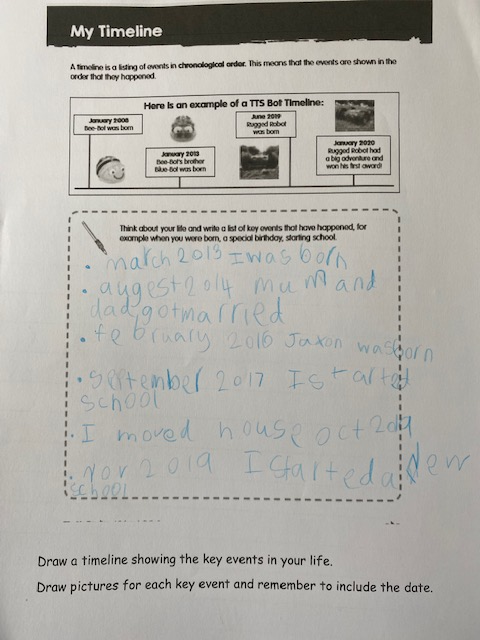 My Timeline
A timeline is a listing of events in chronological order. This means that the events are shown in the
order that they happened.
Here is an example of a TTS Bot Timeline:
January 2008
Bee-Bot was born
January 2013
Bee-Bot's brother
Blue-Bot was born
June 2019
Rugged Robot
was born
January 2020
Rugged Robot had
a big adventure and
won his first award!
Think about your life and write a list of key events that have happened, for
example when you were born, a special birthday, starting school.
• march 2013 I was born
• augest 2014 mum and
dad got married
• february 2016 Jaxon was born
• september 2017 I started
school
• I moved house oct 2019
• Nov 2019 I started a New
school
Draw a timeline showing the key events in your life.
Draw pictures for each key event and remember to include the date.